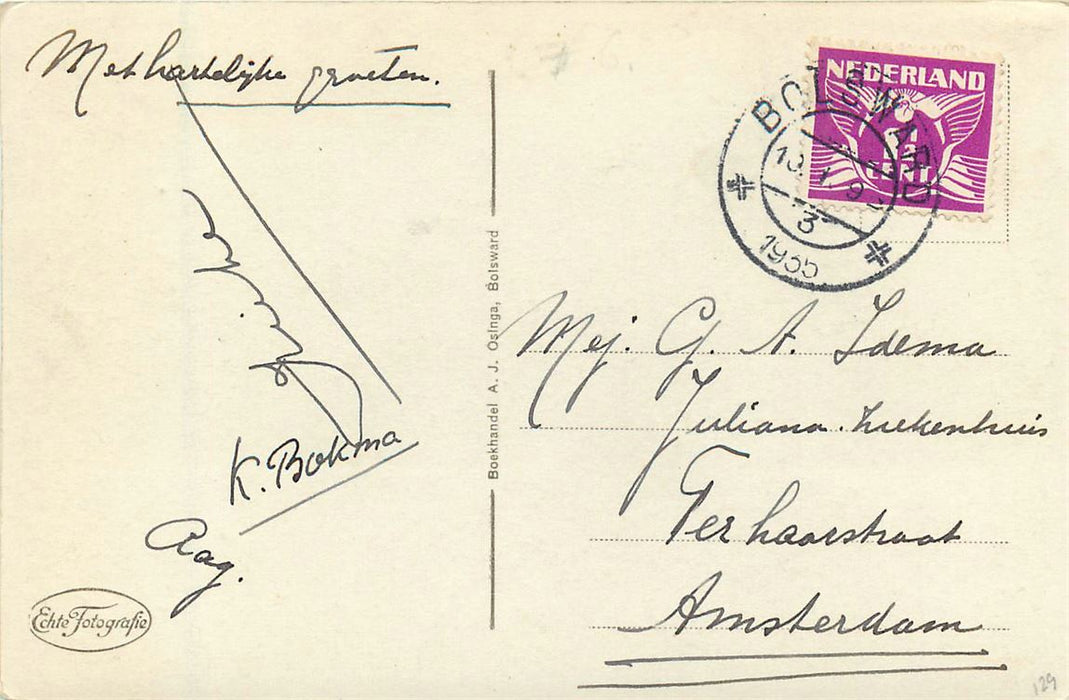 Met hartelijke groeten.
K. Bokma
Aag.
Echte Fotografie
Boekhandel A. J. Osinga, Bolsward
NEDERLAND
1½
CENT
BOLSWARD
3
1935
Mej. G. A. Idema
Juliana. Ziekenhuis
Ter haarstraat
Amsterdam
129